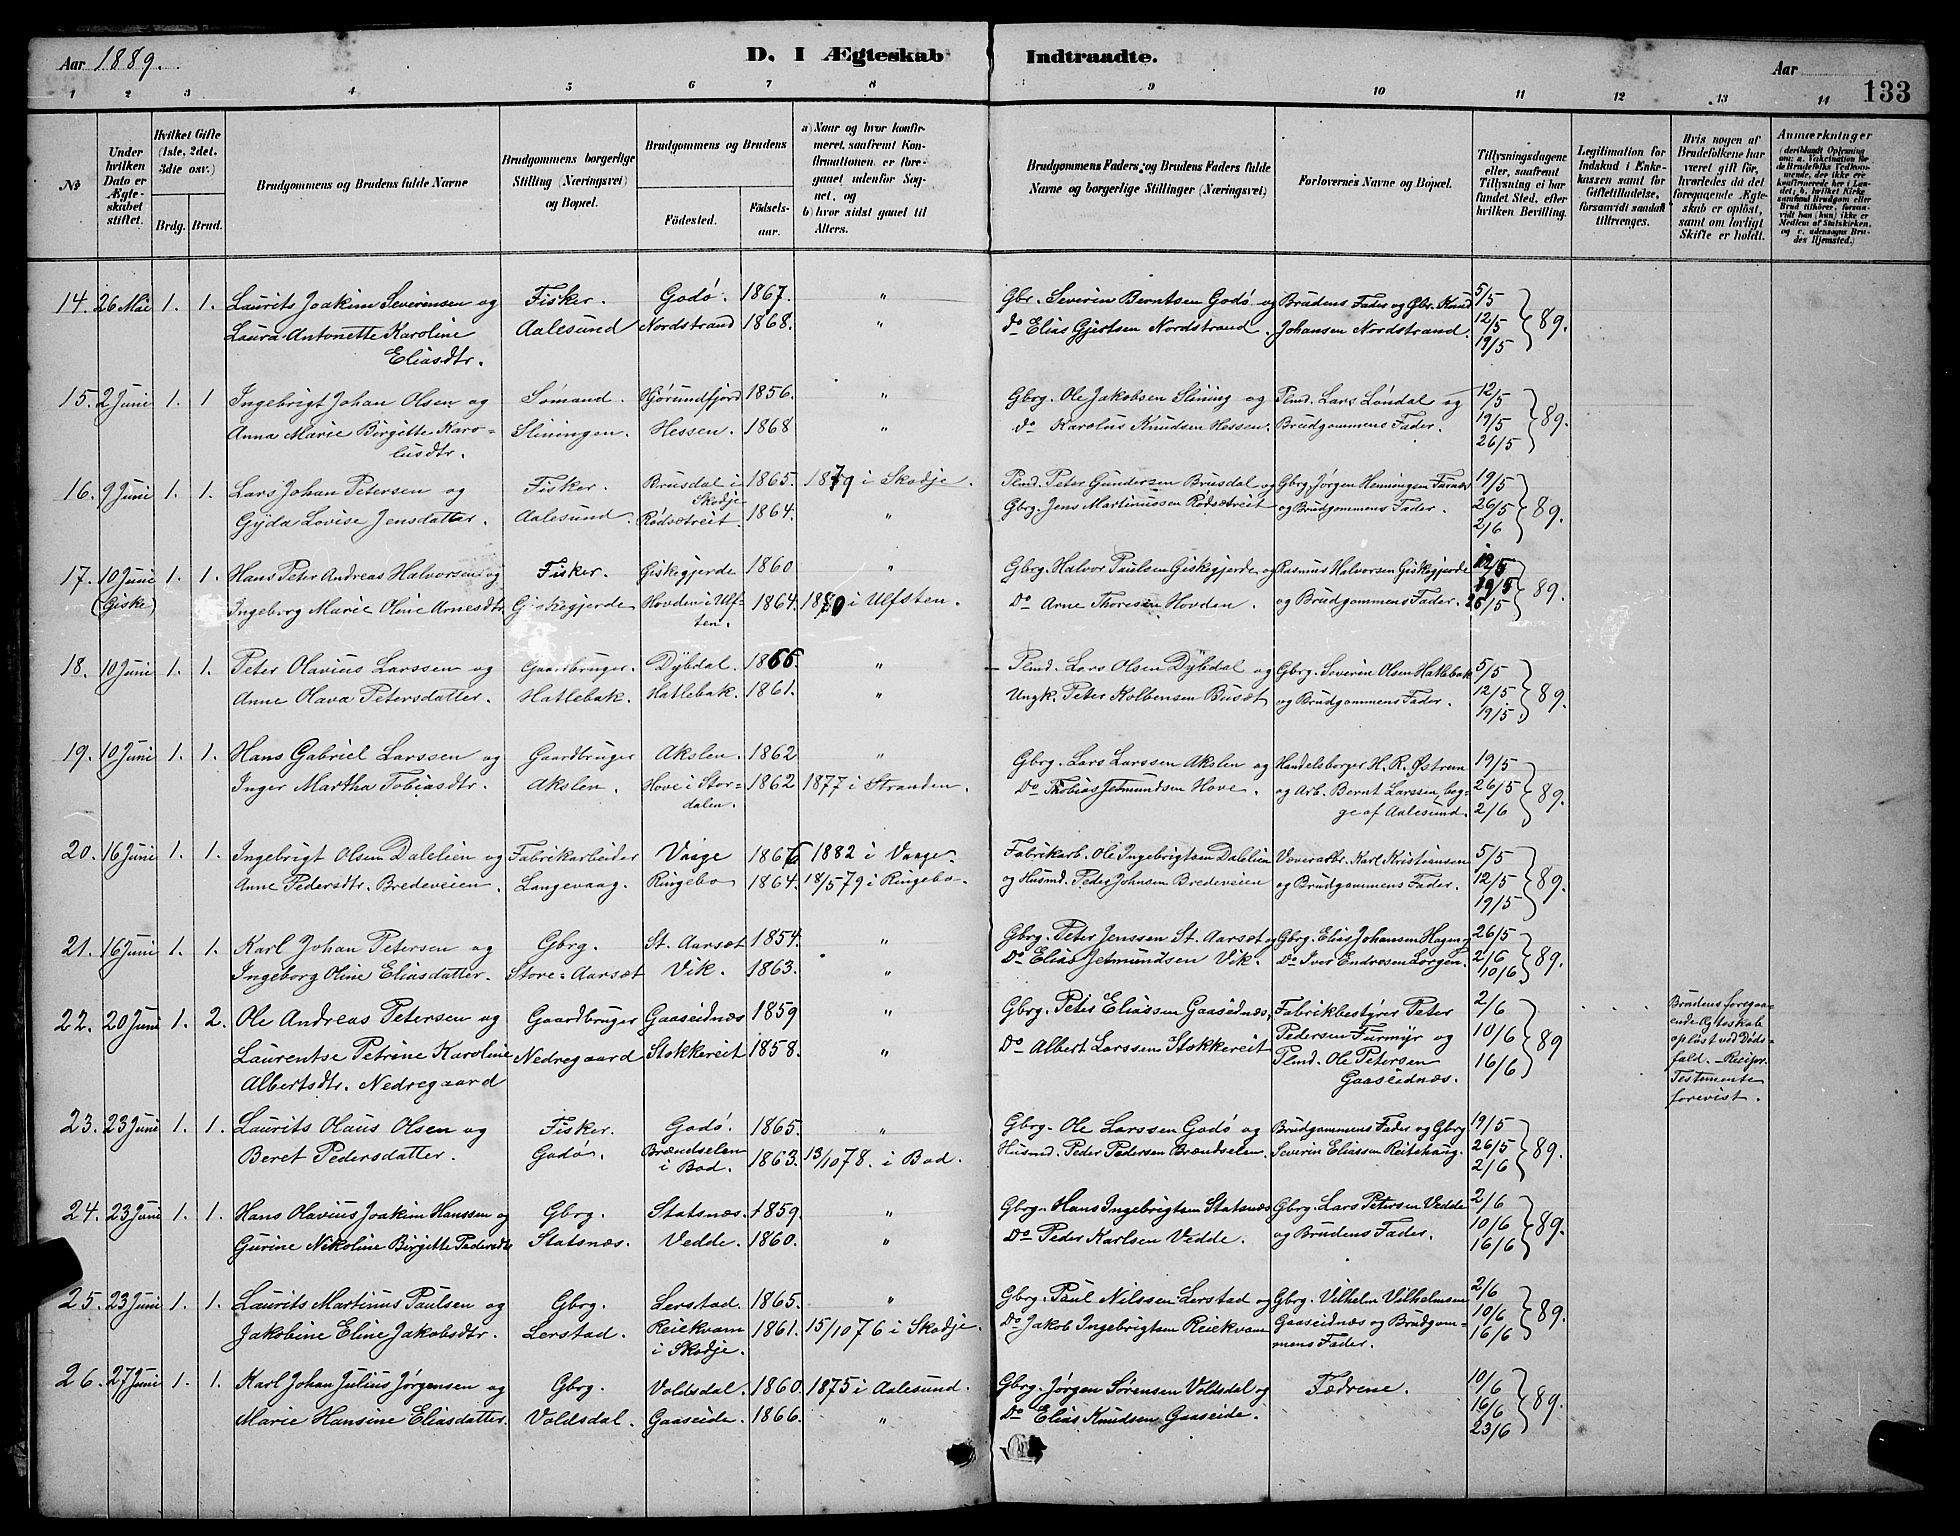 Aar 1889. D. I Ægteskab Indtraadte. Aar 133
1 2 3 4 5 6 7 8 9 10 11 12 13 14
No
Under hvilken Dato er Ægteskabet stiftet.
Hvilket Gifte (1ste, 2det, 3die osv.)
Brdg. Brud.
Brudgommens og Brudens fulde Navne
Brudgommens borgerlige Stilling (Næringsvei) og Bopæl.
Brudgommens og Brudens
Födested. Födselsaar.
a) Naar og hvor konfirmeret, saafremt Konfirmationen er foregaaet udenfor Sognet, og
b) hvor sidst gaaet til Alters.
Brudgommens Faders og Brudens Faders fulde Navne og borgerlige Stillinger (Næringsvei)
Forlovernes Navne og Bopæl.
Tillysningsdagene eller, saafremt Tillysning ei har fundet Sted, efter hvilken Bevilling.
Legitimation for Indskud i Enkekassen samt for Giftetilladelse, forsaavidt saadan tiltrænges.
Hvis nogen af Brudefolkene har været gift för, hvorledes da det foregaaende Ægteskab er oplöst, samt om lovligt Skifte er holdt.
Anmærkninger (deriblandt Oplysning om: a. Vakcination for de Brudefolks Vedkommende, der ikke ere konfirmerede her i Landet; b. hvilket Kirkesamfund Brudgom eller Brud tilhörer, forsaavidt han (hun) ikke er Medlem af Statskirken, og c. udensogns Brudes Hjemsted.)
14. 26 Mai 1. 1. Laurits Joakim Severinsen og Fisker. Godø. 1867. " Gbr. Severin Berntsen Godø og Brudens Fader og Gbr. Knud 5/5
Laura Antonette Karoline Aalesund Nordstrand 1868. " Do Elias Gjertsen Nordstrand. Johansen Nordstrand. 12/5 89.
Eliasdtr. 19/5
15. 2 Juni 1. 1 Ingebrigt Johan Olsen og Sømand. Hjørundfjord 1856. " Gbrg. Ole Jakobsen Slining og Plmd. Lars Løndal og 12/5
Anna Marie Birgitte Karo- Sliningen. Hessen. 1868 " Do Karolus Knudsen Hessen. Brudgommens Fader. 19/5 89.
lusdtr. 26/5
16. 9 Juni 1. 1. Lars Johan Petersen og Fisker. Brusdal i Skodje 1865. 1879 i Skodje. Plmd. Peter Gundersen Brusdal og Gbrg. Jørgen Henningsen Furnæs 19/5
Gyda Lovise Jensdatter. Aalesund. Rødsetreit. 1864. " Gbrg. Jens Martinussen Rødsetreit og Brudgommens Fader. 26/5 89.
2/6
17. 10 Juni 1. 1. Hans Peter Andreas Halvorsen og Fisker. Giskegjerde 1860 " Gbrg. Halvor Paulsen Giskegjerde og Rasmus Halvorsen Giskegjerde 12/5
(Giske) Ingeborg Marie Oline Arnesdtr. Giskegjerde Hovden i Ulfsten. 1864. 1880 i Ulfsten. Do Arne Thoresen Hovden. og Brudgommens Fader. 19/5 89.
26/5
18. 10 Juni 1. 1. Peter Olavius Larssen og Gaardbruger. Dybdal. 1866. " Plmd. Lars Olsen Dybdal og Gbrg. Severin Olsen Hatlebak 5/5
Anne Olava Petersdatter. Hatlebak. Hatlebak. 1861. " Ungk. Peter Kolbensen Busæt og Brudgommens Fader. 12/5 89.
19/5.
19. 10 Juni 1. 1. Hans Gabriel Larssen og Gaardbruger Akslen. 1862 " Gbrg. Lars Larssen Akslen og Handelsborger H. R. Østrem 19/5
Inger Martha Tobiasdtr. Akslen. Hove i Stordalen. 1862 1877 i Stranden. Do Thobias Jetmundsen Hove. og Arb. Bernt Larssen, beg- 26/5 89.
ge af Aalesund. 2/6
20. 16 Juni 1. 1. Ingebrigt Olsen Dalelien og Fabrikarbeider Vaage 1866 1882 i Vaage. Fabrikarb. Ole Ingebrigtsen Dalelien Væverarbr. Karl Kristiansen 5/5
Anne Pedersdtr. Bredeveien. Langevaag. Ringebo 1864. 18/5 79 i Ringebo. og Husmd. Peder Johnsen Bredeveien og Brudgommens Fader. 12/5 89.
19/5
21. 16 Juni 1. 1. Karl Johan Petersen og Gbrg. St. Aarsæt 1854. " Gbrg. Peter Jenssen St. Aarsæt og Gbrg. Elias Johansen Hagen, 26/5
Ingeborg Oline Eliasdatter. Store-Aarsæt Vik. 1863. " Do Elias Jetmundsen Vik. Do Iver Endresen Lorgen. 2/6 89.
10/6
22. 20 Juni 1. 2. Ole Andreas Petersen og Gaardbruger Gaaseidnæs 1859 " Gbrg. Peter Eliassen Gaaseidnæs, Fabrikbestyrer Peter 2/6 Brudens foregaa-
Laurentse Petrine Karoline Nedregaard Stokkereit 1858. " Do Albert Larssen Stokkereit Pedersen Furmyr og 10/6 89 ende Ægteskab
Albertsdtr. Nedregaard Plmd. Ole Petersen 16/6 opløst ved Døds-
Gaaseidnæs. fald. –
Testamente
forevist.
23. 23 Juni 1. 1. Laurits Olaus Olsen og Fisker. Godø. 1865. " Gbrg. Ole Larssen Godø og Brudgommens Fader og Gbrg 19/5
Beret Pedersdatter. Godø. Brændselen i Bod. 1863. 13/10 78. i Bod. Husmd. Peder Pedersen Brændselen. Severin Eliassen Reitehaug. 26/5 89.
2/6
24. 23 Juni 1. 1. Hans Olavius Joakim Hanssen og Gbrg. Statsnæs. 1859. " Gbrg. Hans Ingebrigtsen Statsnæs Gbrg. Lars Petersen Vedde 2/6
Gurine Nikoline Birgitte Pedersdtr. Statsnæs. Vedde. 1860. " Do Peder Karlsen Vedde. og Brudens Fader. 10/6 89.
16/6
25. 23 Juni 1. 1. Laurits Martinus Paulsen og Gbrg. Lerstad. 1865. " Gbrg. Paul Nilssen Lerstad og Gbrg. Vilhelm Vilhelmsen 2/6
Jakobine Eline Jakobsdtr. Lerstad. Reiekvam i Skodje. 1861. 15/10 76 i Skodje. Do Jakob Ingebrigtsen Reiekvam Gaaseidnæs og Brudgom- 10/6 89.
mens Fader. 16/6
26. 27 Juni 1. 1. Karl Johan Julius Jørgensen og Gbrg. Voldsdal. 1860. 1875 i Aalesund. Gbrg. Jørgen Sørensen Voldsdal og Fædrene. 10/6
Marie Hansine Eliasdatter. Voldsdal. Gaaseide. 1866. " Do Elias Knudsen Gaaseide. 16/6 89.
23/6